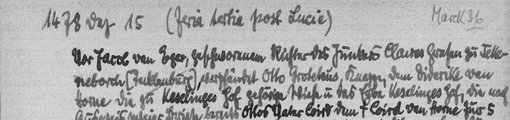 1478 Dez 15 (feria tertia post Lucie) Marck 36
Vor Jacob van Eger, geschworenem Richter des Junkers Clawes Grafen zu Teke-
neborch (Tecklenburg), verpfändet Otto Grotehus, Knappe, dem Diderike van
Horne die zu Keselinges Hof gehörige Wiese u das Erbe Keselinges Hof, die nach
bereits Ottos Vater Coird dem † Coird van Horne für 5